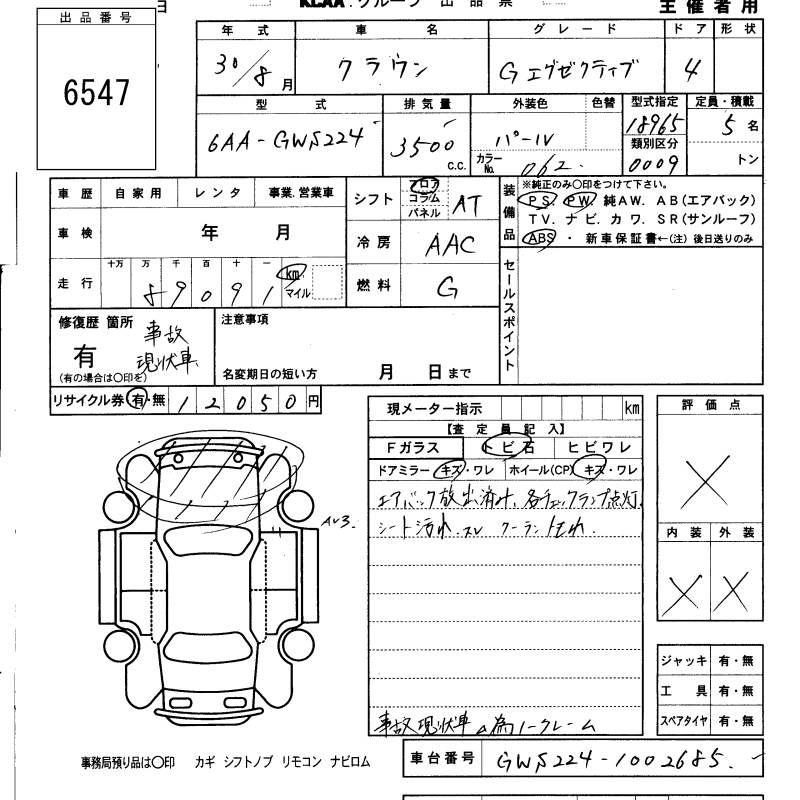 出品番号
6547
KCAA.グループ 出品票
主催者用
年式 車名 グレード ドア 形状
30/8月 クラウン G エグゼクティブ 4
型式 排気量 外装色 色替 型式指定 定員・積載
6AA-GWS224 3500 c.c. パール 18965 5名
カラーNo. 062 類別区分 0009 トン
車歴 自家用 レンタ 事業.営業車
車検 年 月
走行 十万 万 千 百 十 一 km マイル
89091
シフト フロア コラム パネル AT
冷房 AAC
燃料 G
装備品 ※純正のみ○印をつけて下さい。
PS PW 純AW. AB(エアバック)
TV. ナビ. カワ. SR(サンルーフ)
ABS ・ 新車保証書←(注) 後日送りのみ
セールスポイント
修復歴 箇所 事故
有 現状車
(有の場合は○印を)
注意事項
名変期日の短い方 月 日まで
リサイクル券 有・無 12050円
現メーター指示 km
【査定員記入】
Fガラス トビ石 ヒビワレ
ドアミラー キズ・ワレ ホイール(CP) キズ・ワレ
エアバック放出済み、各チェックランプ点灯.
シート汚れ.スレ クーラントもれ.
事故現状車の為ノークレーム
評価点
X
内装 外装
X X
ジャッキ 有・無
工具 有・無
スペアタイヤ 有・無
事務局預り品は○印 カギ シフトノブ リモコン ナビロム
車台番号 GWS224-1002685.